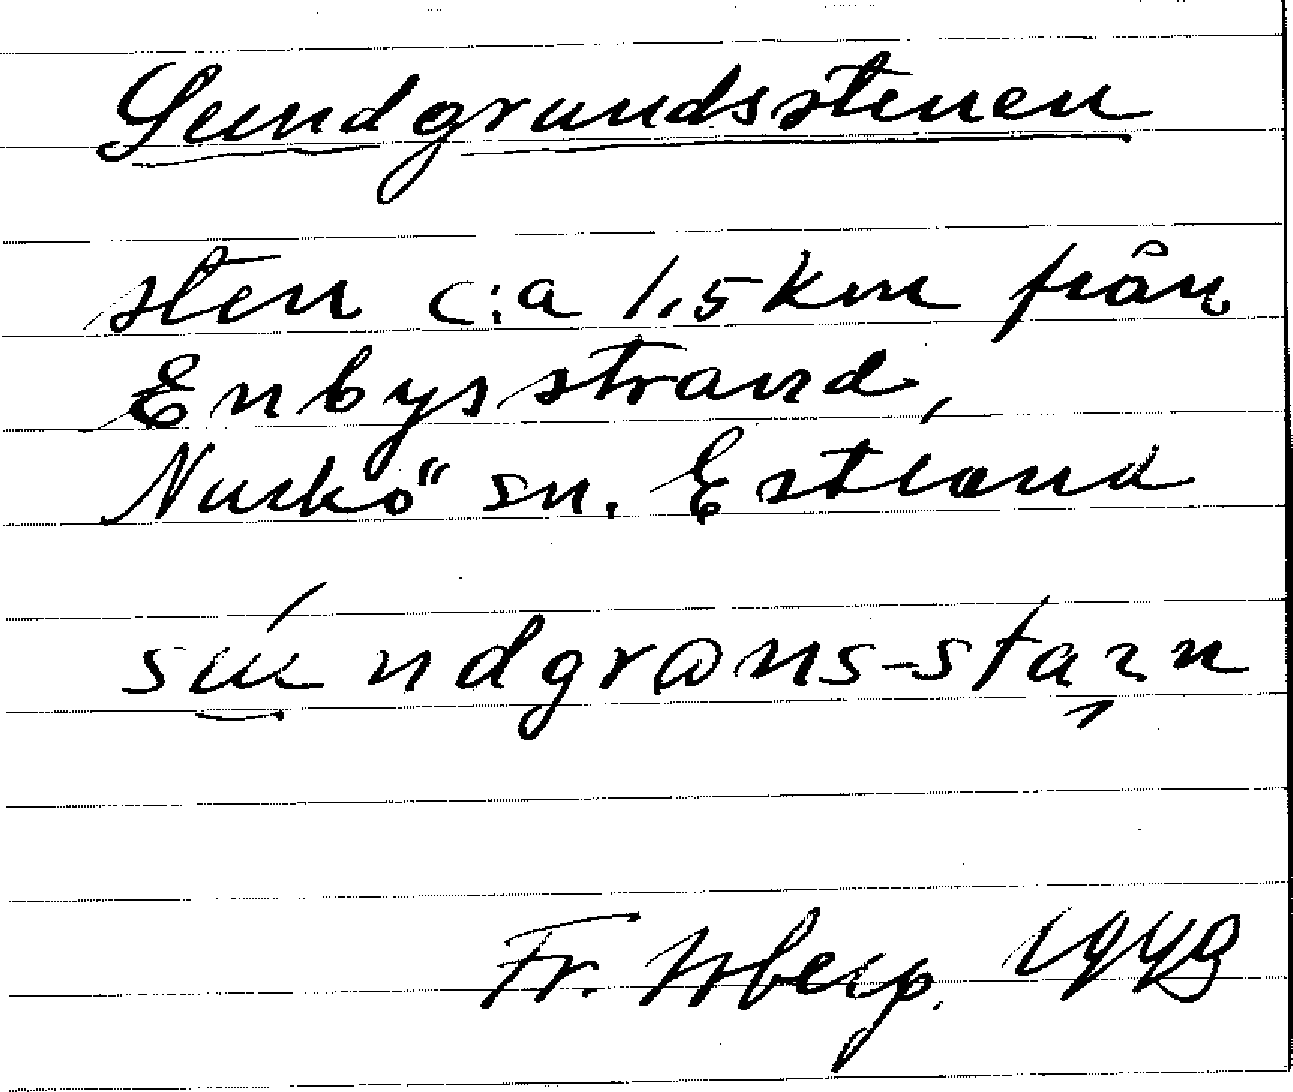 Sundgrundsstenen
sten c:a 1,5 km från
Enbysstrand,
Nuckö sn. Estland
sundgrøns-stazn
Fr. 1949